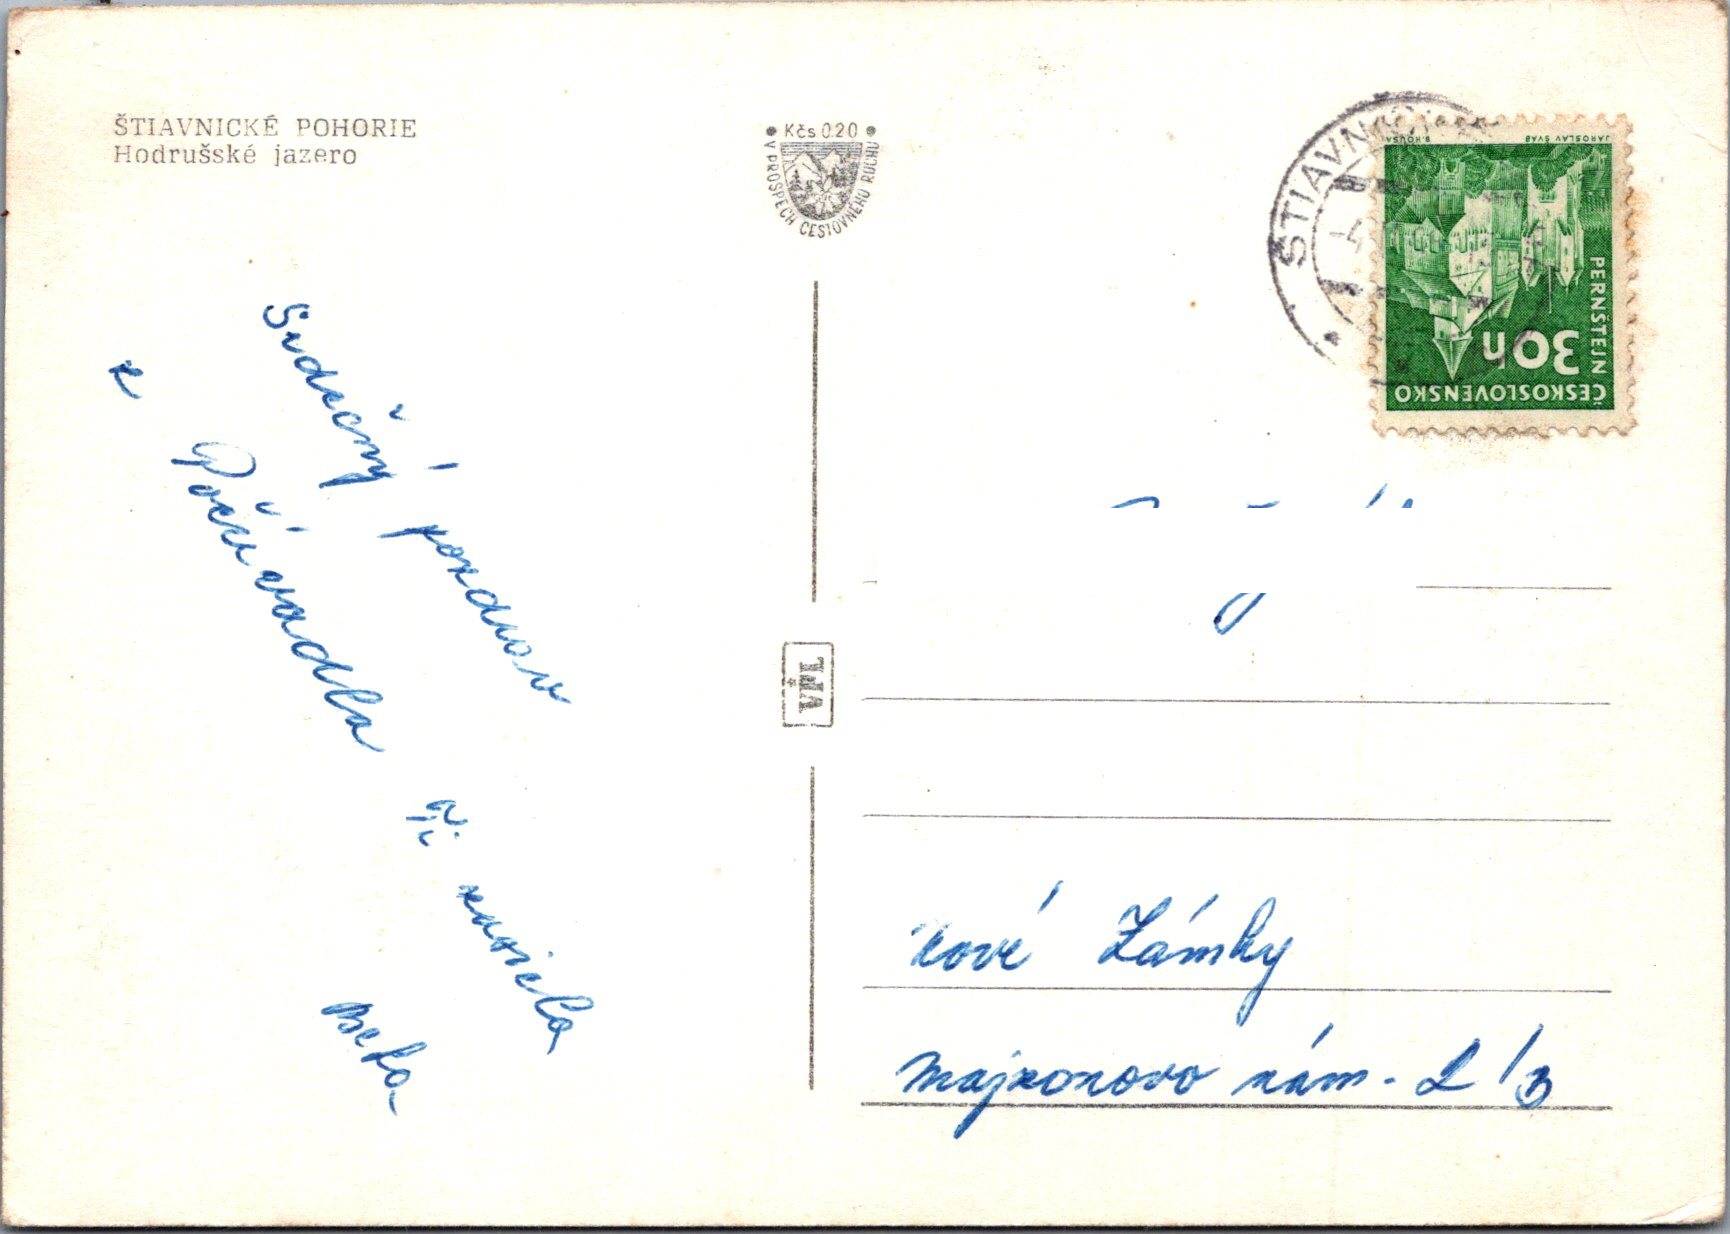 ŠTIAVNICKÉ POHORIE
Hodrušské jazero
Kčs 0.20
V PROSPECH CESTOVNÉHO RUCHU
ŠTIAVNICK
-4
B. HOUSA
JAROSLAV ŠVÁB
PERNŠTEJN
30h
ČESKOSLOVENSKO
Srdečný pozdrav
z Počúvadla
Beta
VTL
Nové Zámky
Majzonovo nám. 2/B